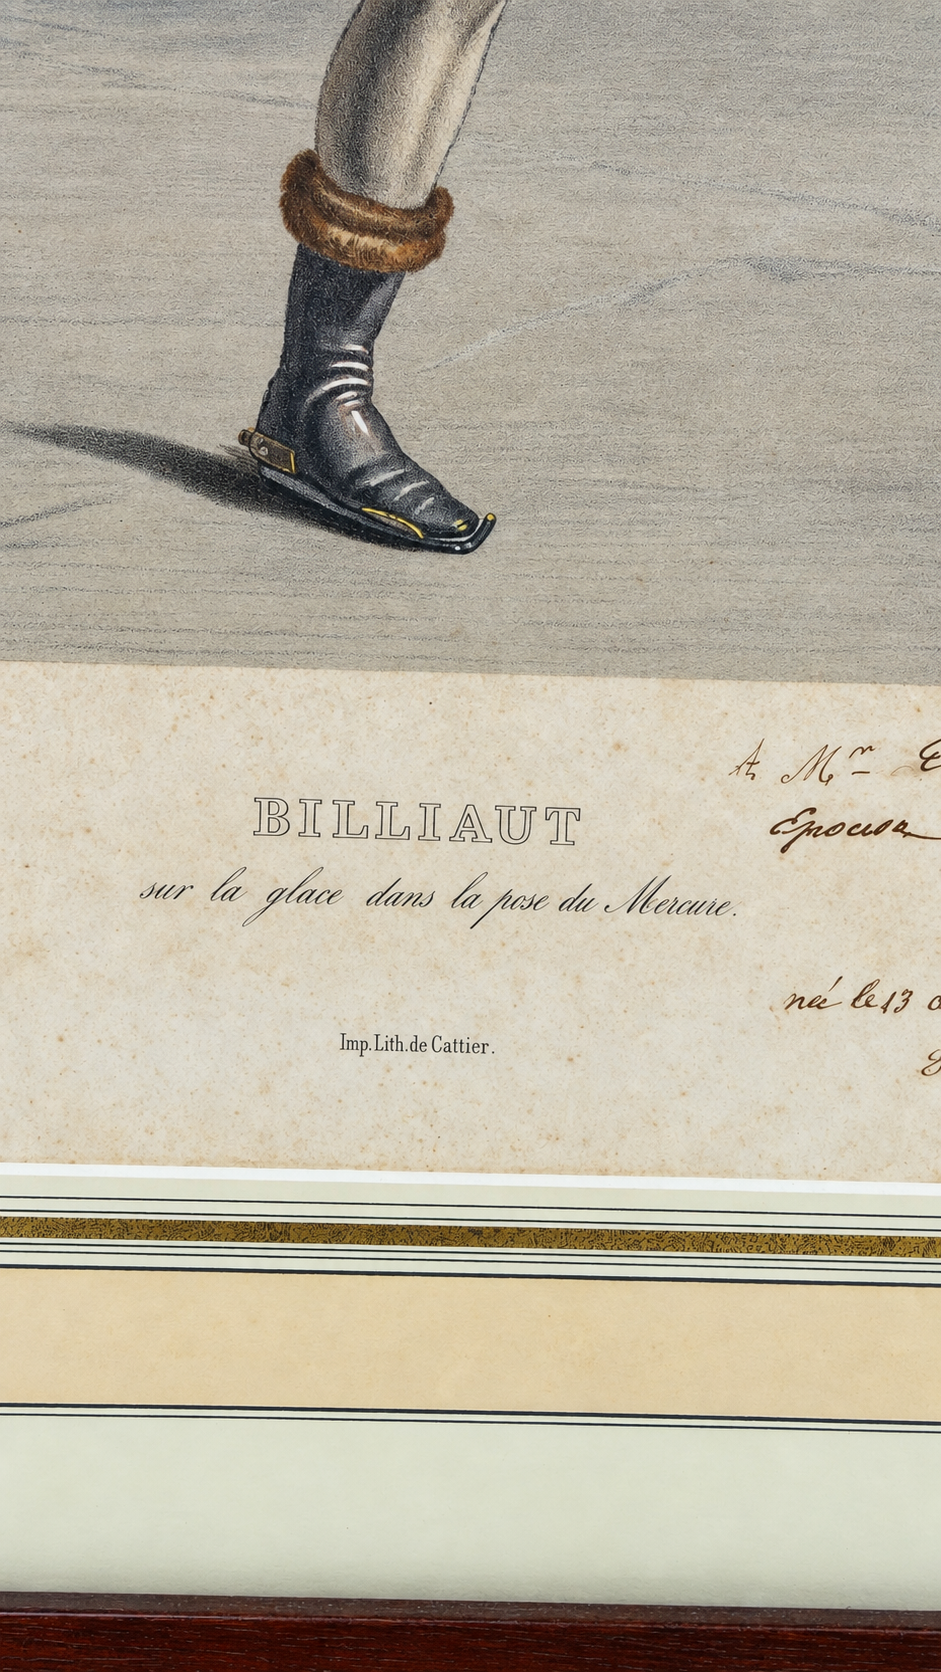 BILLIAUT
sur la glace dans la pose du Mercure.
Imp. Lith. de Cattier.
A Mr
née le 13